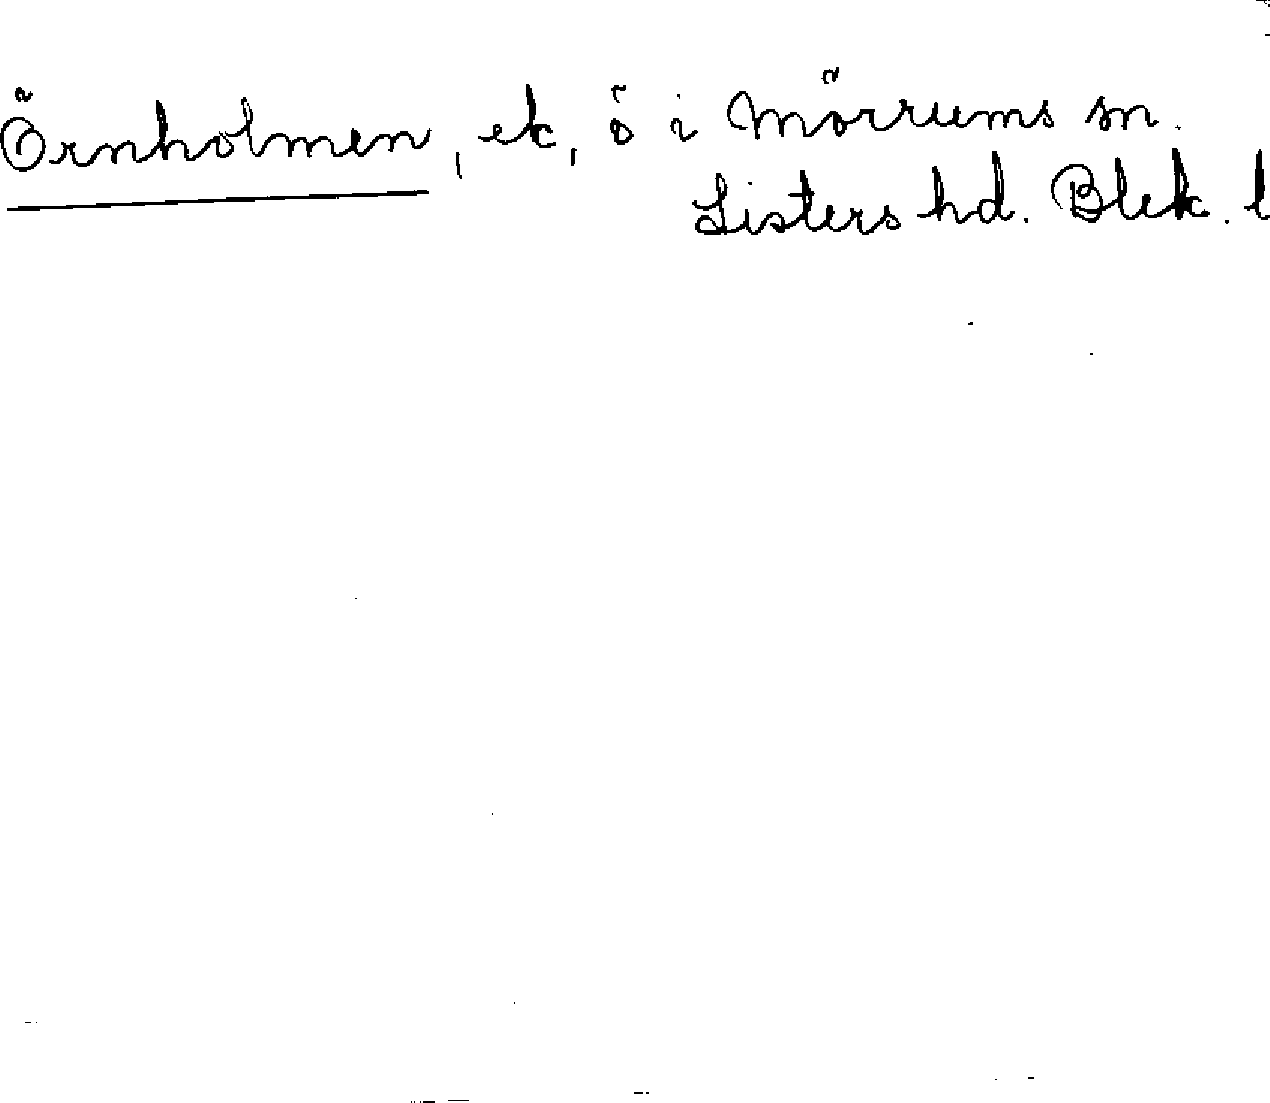 Örnholmen, ek, ö i Mörrums sn.
Listers hd. Blek. l